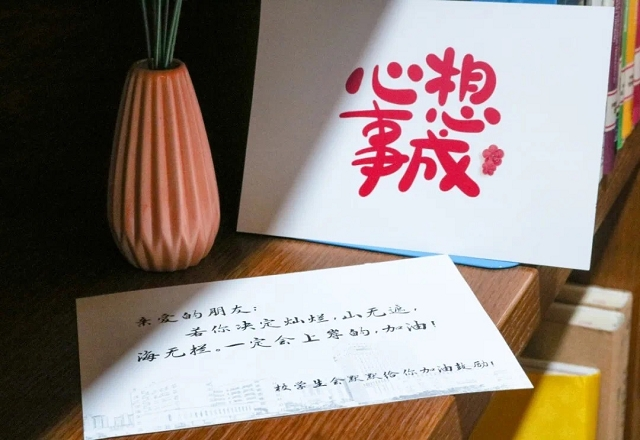 心想
事成
亲爱的朋友:
若你决定灿烂,山无遮,
海无拦。一定会上岸的,加油!
校学生会默默给你加油鼓励!